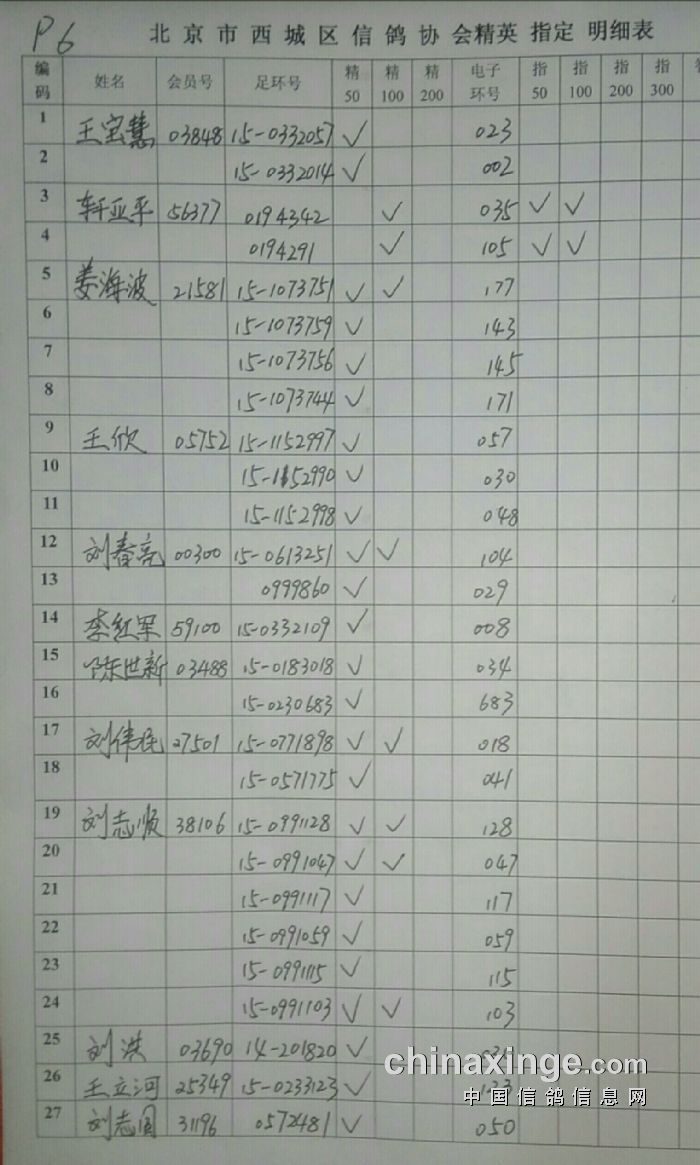 P6
北京市西城区信鸽协会精英 指定 明细表
编码 姓名 会员号 足环号 精50 精100 精200 电子环号 指50 指100 指200 指300
1 王宝慧 03848 15-0332057 ✓ 023
2 15-0332014 ✓ 002
3 轩亚平 56377 0194342 ✓ 035 ✓ ✓
4 0194291 ✓ 105 ✓ ✓
5 姜海波 21581 15-1073751 ✓ ✓ 177
6 15-1073759 ✓ 143
7 15-1073756 ✓ 145
8 15-1073744 ✓ 171
9 王欣 05752 15-1152997 ✓ 057
10 15-1152990 ✓ 030
11 15-1152998 ✓ 048
12 刘春亮 00300 15-0613251 ✓ ✓ 104
13 0999860 ✓ 029
14 李红军 59100 15-0332109 ✓ 008
15 陈世新 03488 15-0183018 ✓ 034
16 15-0230683 ✓ 683
17 刘伟民 27501 15-0771898 ✓ ✓ 018
18 15-0571775 ✓ 041
19 刘志顺 38106 15-0991128 ✓ ✓ 128
20 15-0991047 ✓ ✓ 047
21 15-0991117 ✓ 117
22 15-0991059 ✓ 059
23 15-0991115 ✓ 115
24 15-0991103 ✓ ✓ 103
25 刘洪 03690 14-201820 ✓
26 王立河 25349 15-0233123 ✓ 123
27 刘志国 31196 0572481 ✓ 050
chinaxinge.com
中国信鸽信息网